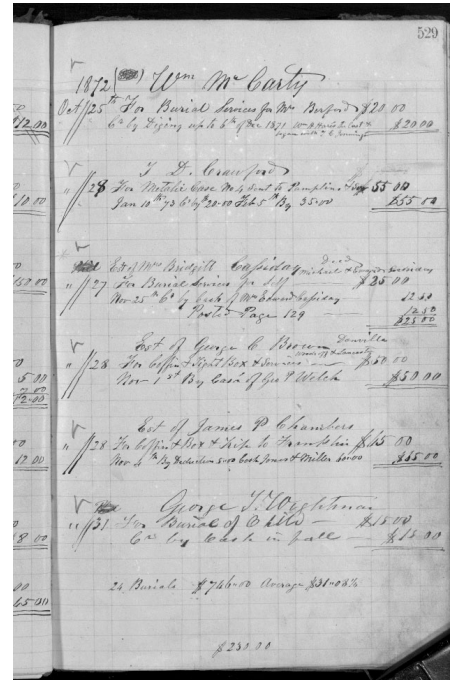 529
1872 Wm McCarty
Oct 25th For Burial Services for Mrs $20.00
Cr by Diging up to 6th of Dec 1871 $20.00
T D. Crawford
" 28 For Metalic Case No 4 Sent to 55 00
Jan 10th 73 Cr by $20-00 Feb 5th By 35-00 $55 00
Est of Mrs Bridgett Cassiday Decd
" 27 For Burial Services for Self $25.00
Nov 25th Cr by Cash of Mr Edward Cassiday 12 50
Posted Page 129 12 50
$25.00
Est of George C Brown Danville
" 28 For Coffin & Box & Services $50.00
Nov 1st By Cash of Geo P Welch $50.00
Est of James P Chambers
" 28 For Coffin & Box & Trip to Franklin $65 00
Nov 4th By Deduction 5.00 Cash Jones & Miller 60.00 $65.00
George T. Wightman
" 31 For Burial of Child — $15.00
Cr by Cash in full — $15.00
24 Burials $746-00 Average $31-08⅓
$230.00
12.00
10.00
150.00
5 00
12.00
8 00
65 00